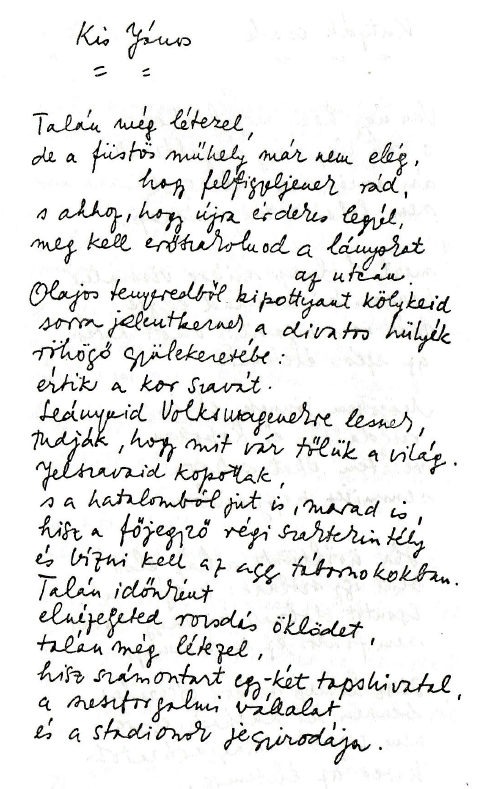 Kis János
Talán még létezel,
de a füstös műhely már nem elég,
hogy felfigyeljenek rád,
s ahhoz, hogy újra érdekes legyél,
meg kell erőszakolnod a lányokat
az utcán.
Olajos tenyeredből kipottyant kölykeid
sorra jelentkeznek a divatos hülyék
röhögő gyülekezetébe:
értik a kor szavát.
Leányaid Volkswagenekre lesnek,
tudják, hogy mit vár tőlük a világ.
Jelszavaid kopottak,
s a hatalomból jut is, marad is,
hisz a főjegyző régi szaktekintély
és bízni kell az agg tábornokokban.
Talán időnként
elnézegeted rozsdás öklödet,
talán még létezel,
hisz számontart egy-két tapshivatal,
a szeszforgalmi vállalat
és a stadionok jegyirodája.